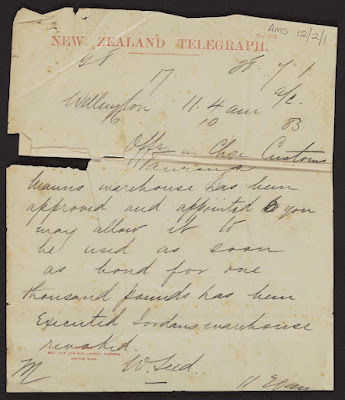 Ams 12/2/1
NEW ZEALAND TELEGRAPH.
17.
Wellington 11.4 am
6 10 83
Offr in Chge Customs
Tauranga
warehouse has been
approved and appointed & you
may allow it to
be used as soon
as bond for one
thousand pounds has been
Executed Jordans warehouse
revoked.
W Seed